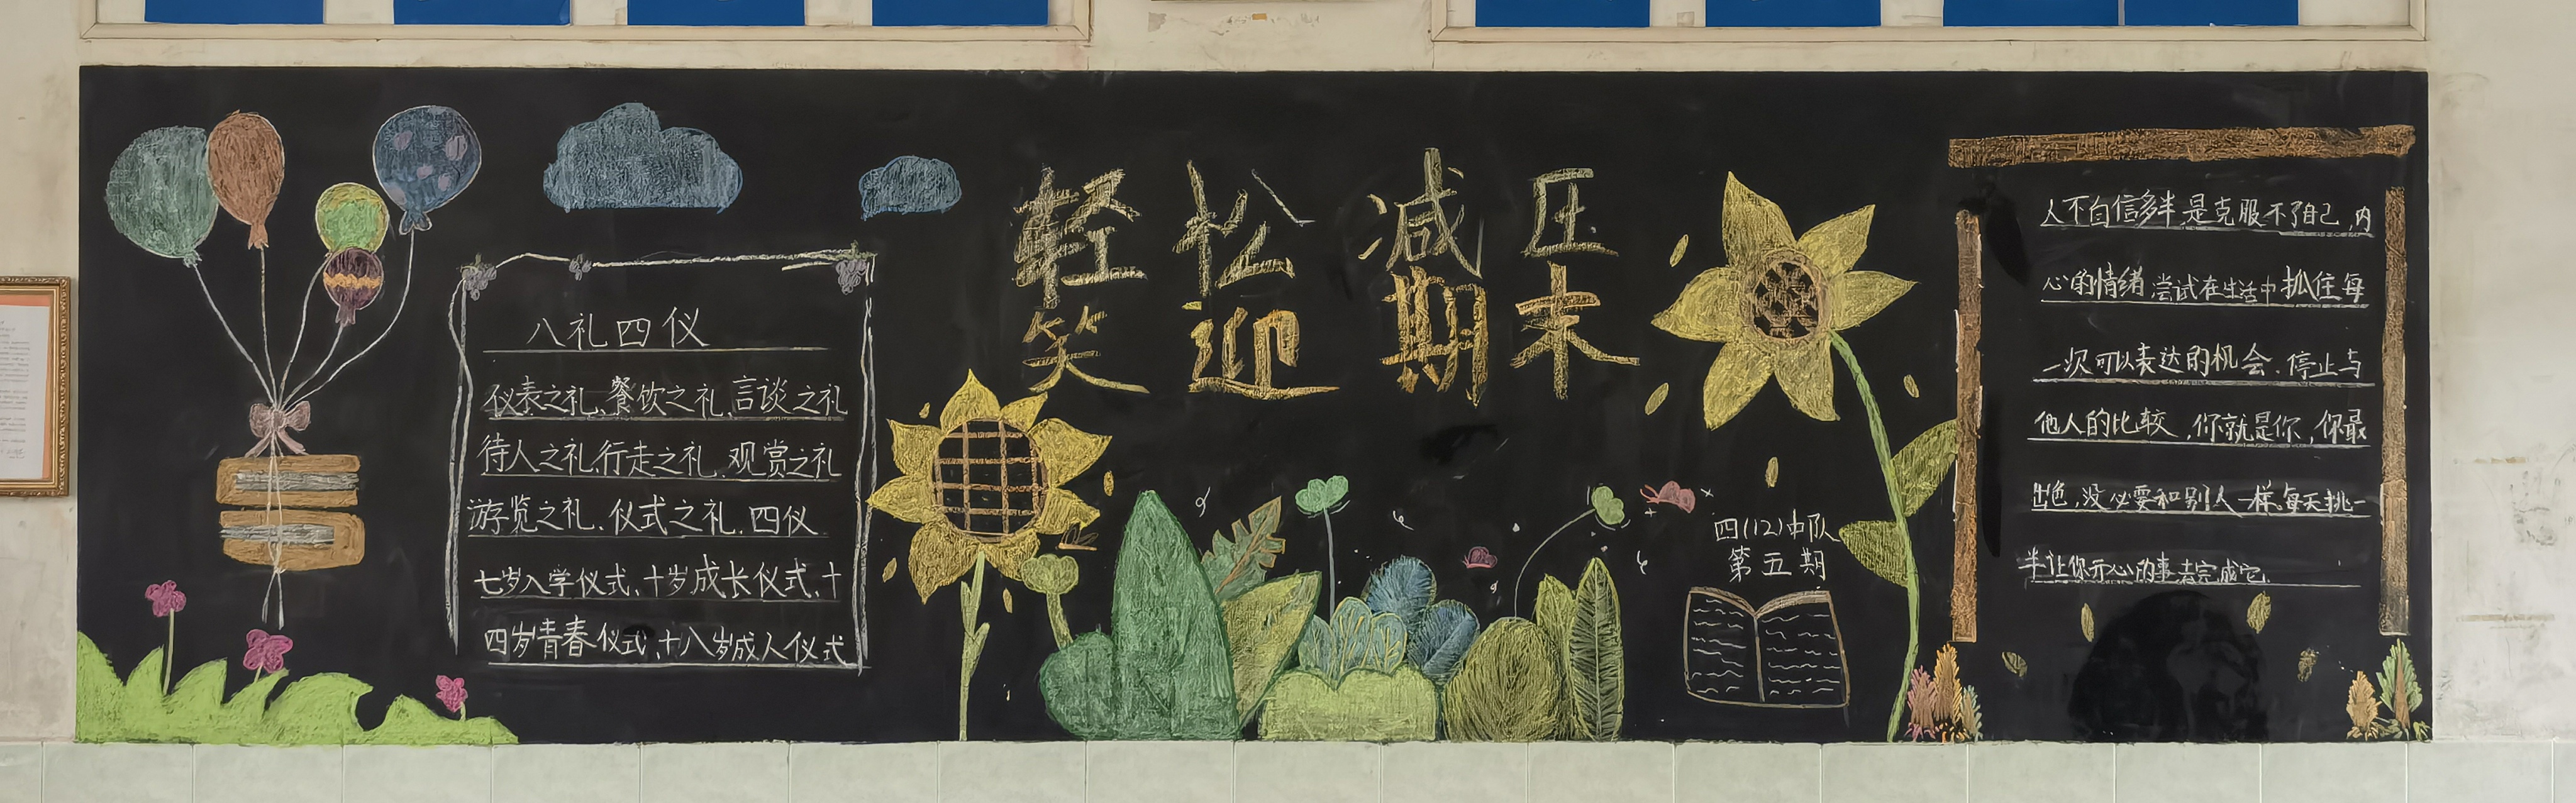 八礼四仪
仪表之礼、餐饮之礼、言谈之礼
待人之礼、行走之礼、观赏之礼
游览之礼、仪式之礼、四仪
七岁入学仪式、十岁成长仪式、十
四岁青春仪式、十八岁成人仪式
轻松减压
笑迎期末
四(12)中队
第五期
人不自信多半是克服不了自己,内
心的情绪 尝试在生活中抓住每
一次可以表达的机会.停止与
他人的比较,你就是你,你最
出色,没必要和别人一样.每天挑一
半让你开心的事去完成它.